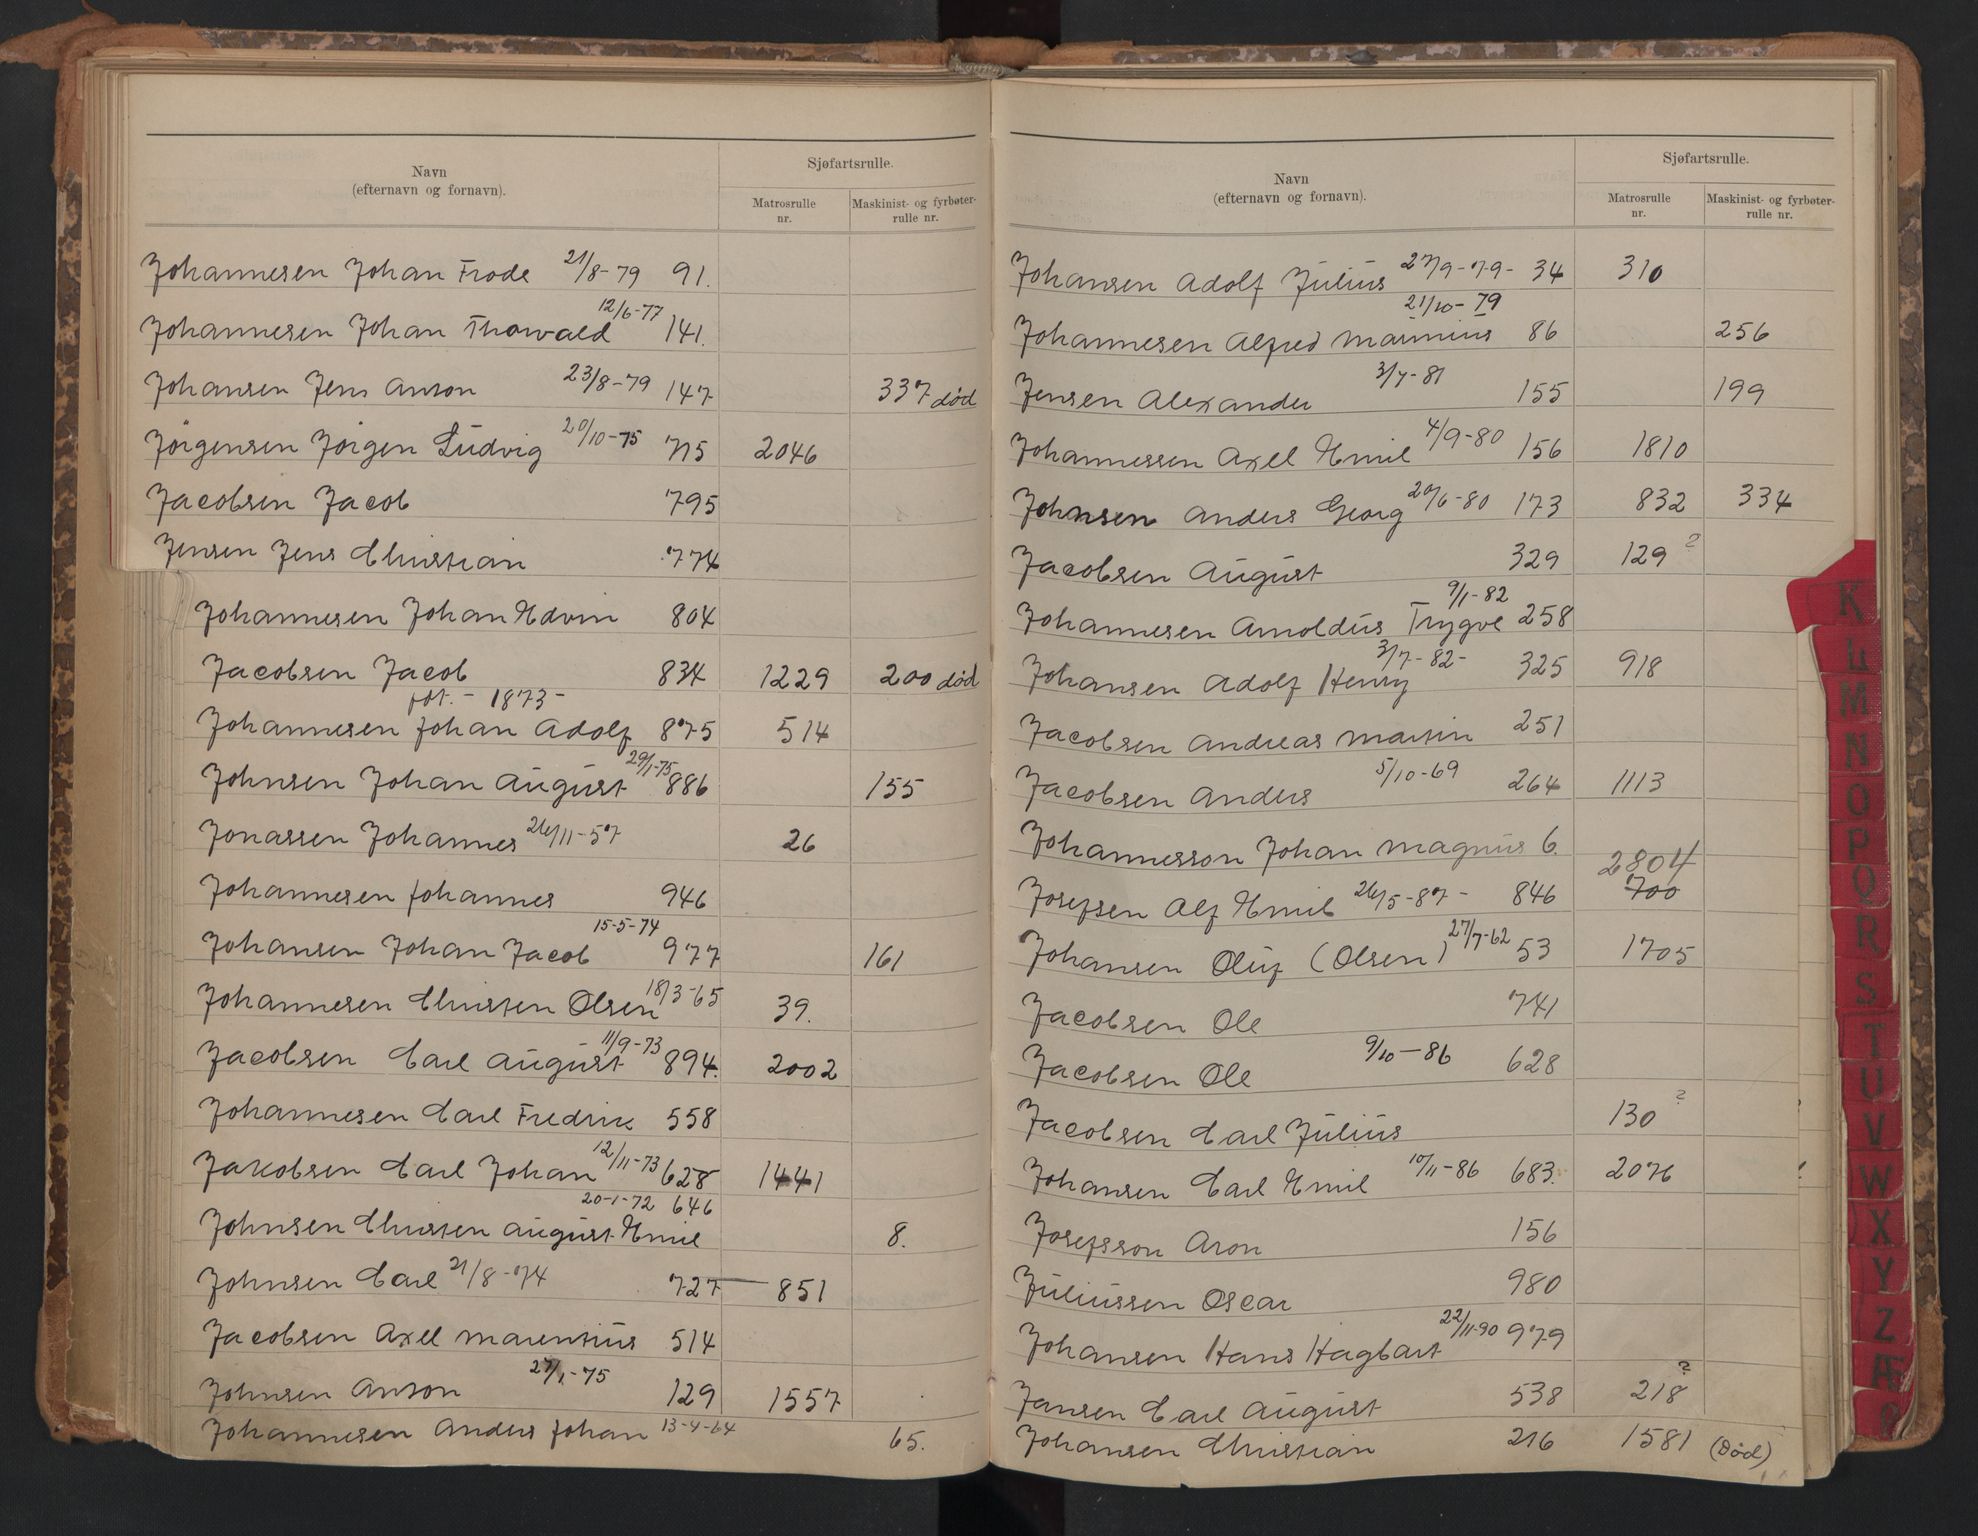 Navn
(efternavn og fornavn).
Sjøfartsrulle.
Matrosrulle nr.
Maskinist- og fyrbøter-rulle nr.
Johannesen Johan Frode 21/8-79 91.
12/6-77
Johannesen Johan Thorvald 141.
Johansen Jens Anton 23/8-79 147 337 død
Jörgensen Jörgen Ludvig 20/10-75 775 2046
Jacobsen Jacob 795
Jensen Jens Christian 774
Johannesen Johan Edvin 804
Jacobsen Jacob 834 1229 200 død
föt. - 1873 -
Johannesen Johan Adolf 875 514
Johnsen Johan August 29/1-75 886 155
Jonassen Johannes 26/11-57 26
Johannesen Johannes 946
15-5-74
Johansen Johan Jacob 977 161
Johannesen Christen Olsen 18/3-65 39.
11/9-73
Jacobsen Carl August 894. 2002
Johannesen Carl Fredrik 558
Jakobsen Carl Johan 12/11-73 628 1441
20-1-72 646
Johnsen Christen August Emil 8.
Johnsen Carl 21/8-74 727 851
Jacobsen Axel Marentius 514
27/1-75
Johnsen Anton 129 1557
Johannesen Anders Johan 13-4-64 65.
Navn
(efternavn og fornavn).
Sjøfartsrulle.
Matrosrulle nr.
Maskinist- og fyrbøter-rulle nr.
Johansen Adolf Julius 27/9-79- 34 310
21/10-79
Johannesen Alfred Marinius 86 256
3/7-81
Jensen Alexander 155 199
Johannessen Axel Emil 4/9-80 156 1810
Johnsen Anders Georg 20/6-80 173 832 334
Jacobsen August 329 129 ?
9/1-82
Johannesen Arnoldus Trygve 258
3/7-82-
Johansen Adolf Henry 325 918
Jacobsen Andreas Martin 251
5/10-69
Jacobsen Anders 264 1113
Johannesson Johan Magnus 6.
2804
Josefsen Alf Emil 26/5-87- 846 700
Johansen Oluf (Olsen) 27/7-62 53 1705
Jacobsen Ole 741
Jacobsen Ole 9/10-86 628
Jacobsen Carl Julius 130 ?
Johansen Carl Emil 10/11-86 683. 2076
Josefsson Aron 156
Juliussen Oscar 980
22/11-90
Johansen Hans Hagbart 979
Jansen Carl August 538 218 ?
Johansen Christian 216 1581 (Død)
K
L
M
N
O
P
Q
R
S
T
U
V
W
X
Y
Z
Æ
Ø